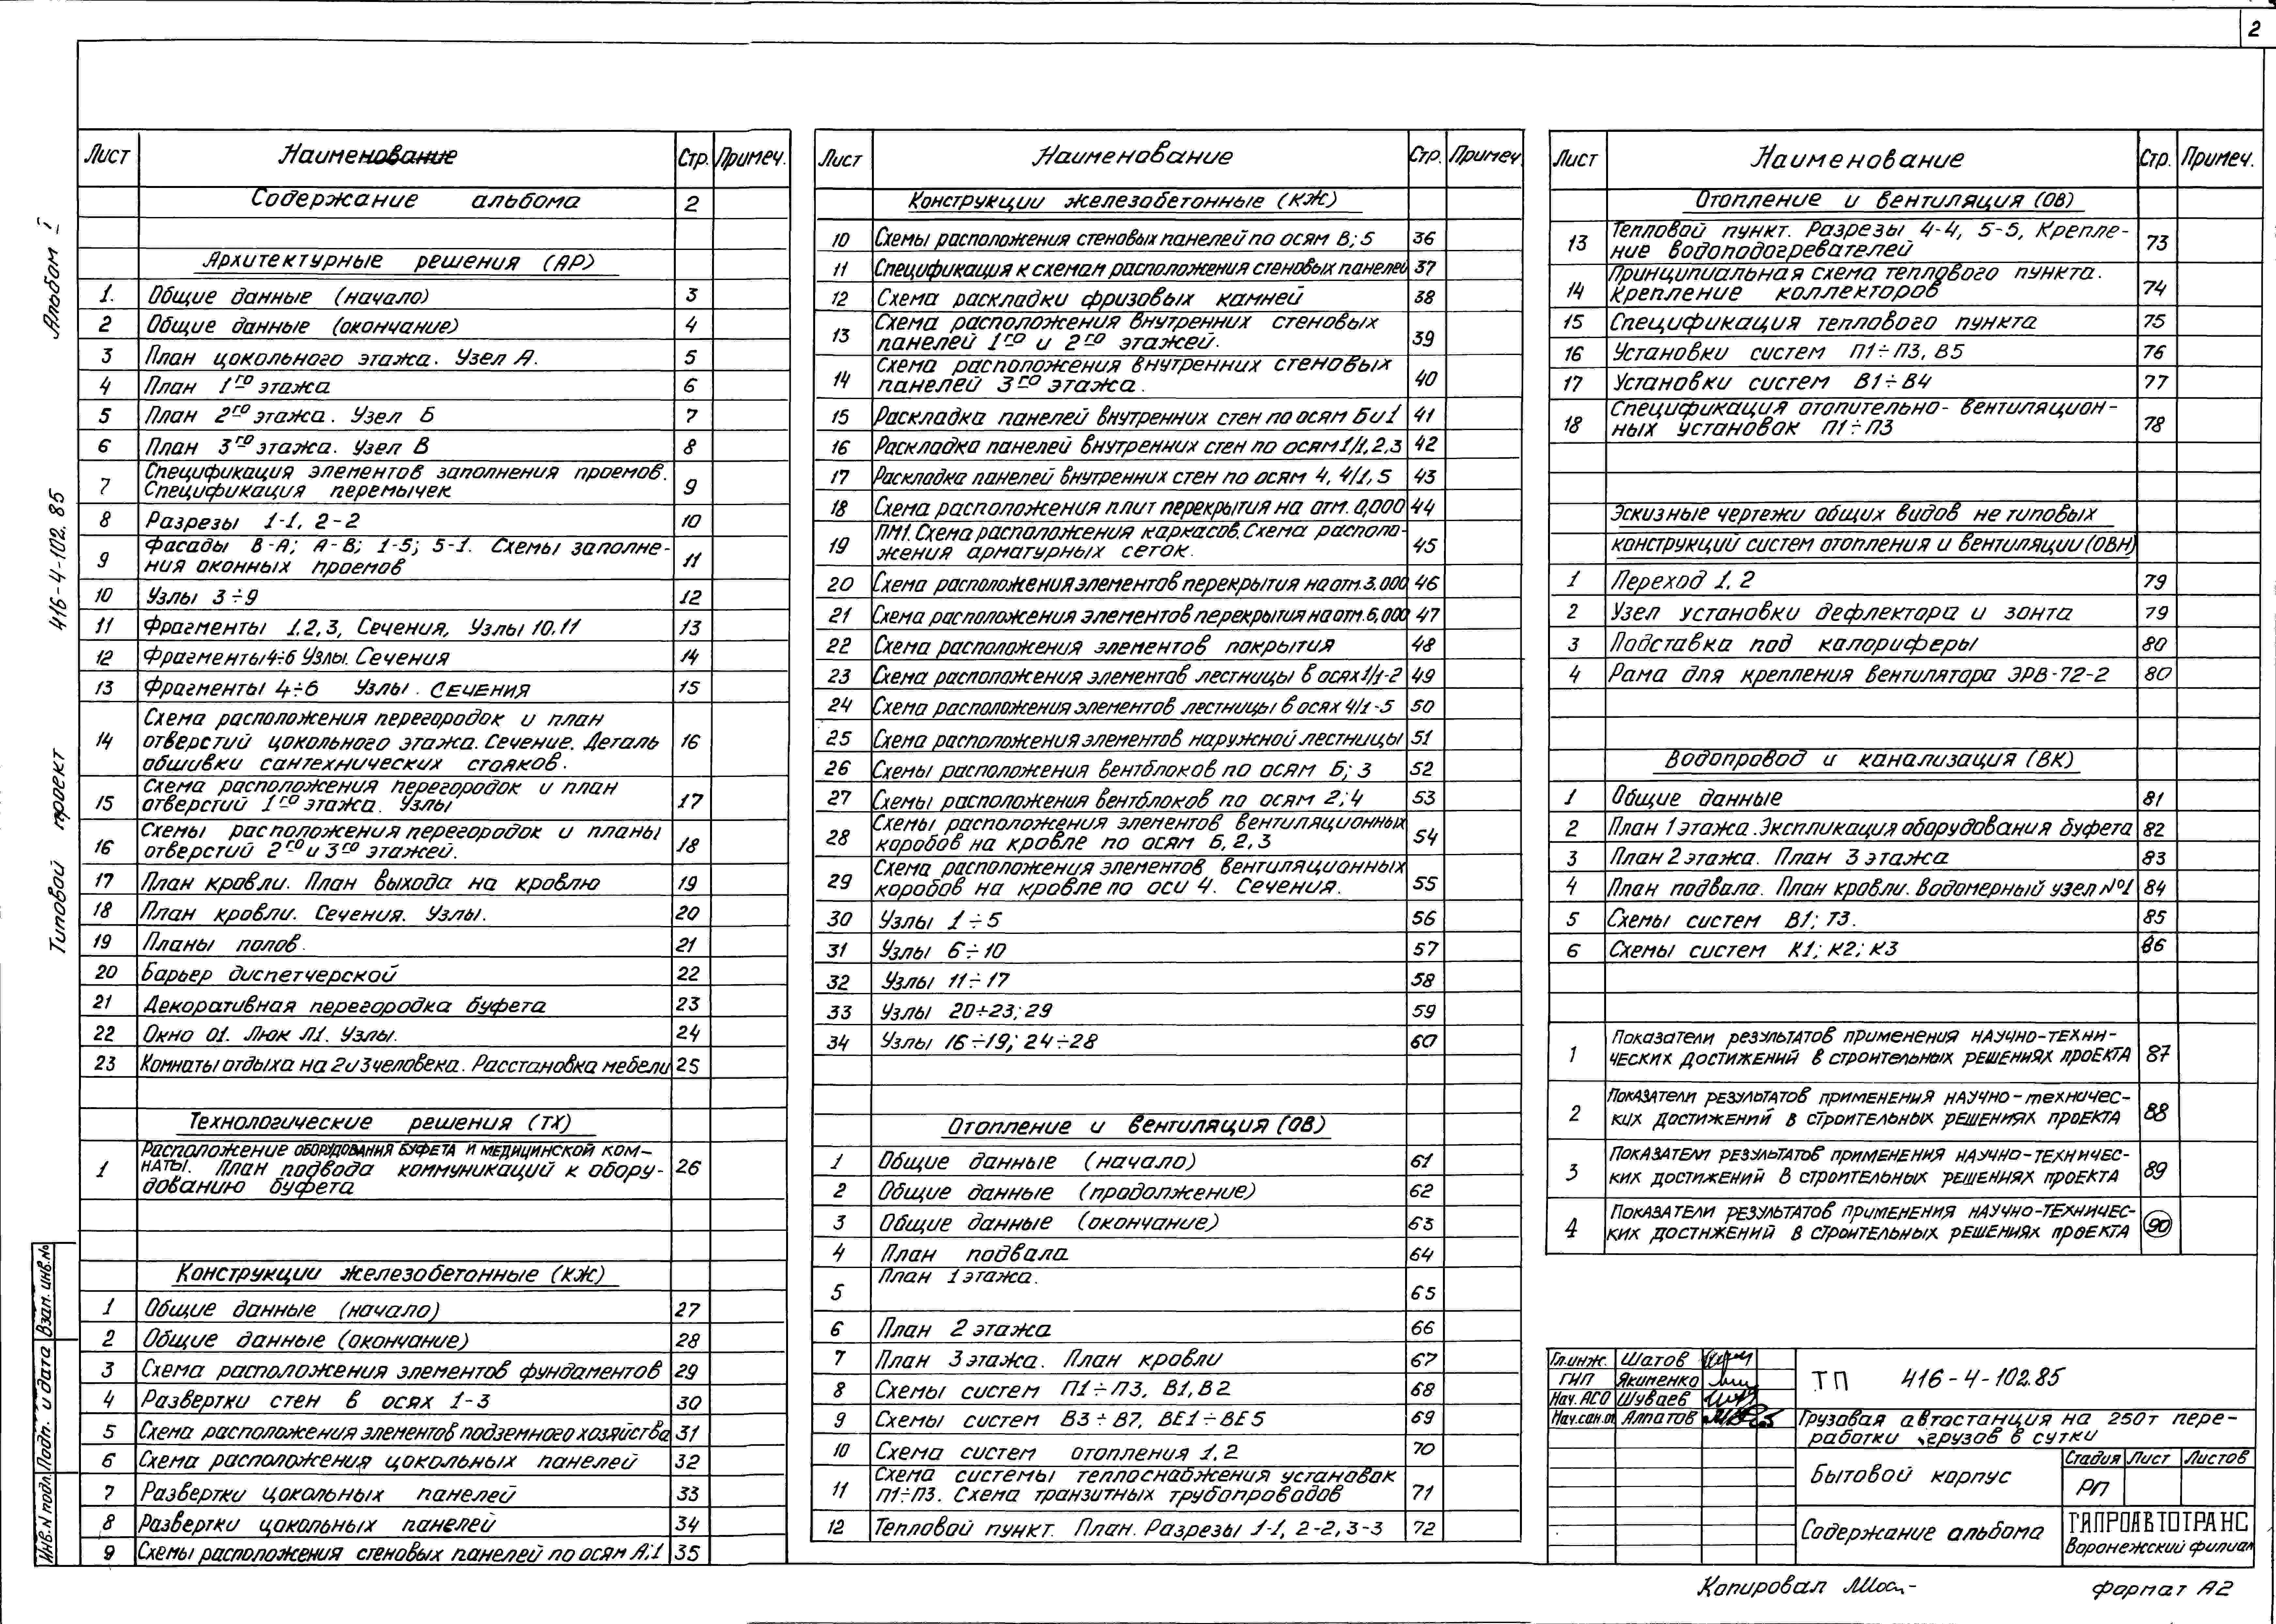 2
Альбом I
416-4-102.85
Типовой проект
Взам. инв.№
Подп. и дата
Инв.N подл.
Лист Наименование Стр. Примеч.
Содержание альбома 2
Архитектурные решения (АР)
1. Общие данные (начало) 3
2 Общие данные (окончание) 4
3 План цокольного этажа. Узел А. 5
4 План 1го этажа 6
5 План 2го этажа. Узел Б 7
6 План 3го этажа. Узел В 8
Спецификация элементов заполнения проемов.
7 Спецификация перемычек 9
8 Разрезы 1-1, 2-2 10
Фасады В-А; А-В; 1-5; 5-1. Схемы заполне-
9 ния оконных проемов 11
10 Узлы 3÷9 12
11 Фрагменты 1,2,3, Сечения, Узлы 10,11 13
12 Фрагменты 4÷6 Узлы. Сечения 14
13 Фрагменты 4÷6 Узлы. Сечения 15
Схема расположения перегородок и план
14 отверстий цокольного этажа. Сечение. Деталь 16
обшивки сантехнических стояков.
Схема расположения перегородок и план
15 отверстий 1го этажа. Узлы 17
Схемы расположения перегородок и планы
16 отверстий 2го и 3го этажей. 18
17 План кровли. План выхода на кровлю 19
18 План кровли. Сечения. Узлы. 20
19 Планы полов. 21
20 Барьер диспетчерской 22
21 Декоративная перегородка буфета 23
22 Окно О1. Люк Л1. Узлы. 24
23 Комнаты отдыха на 2и3человека. Расстановка мебели 25
Технологические решения (ТХ)
Расположение оборудования буфета и медицинской ком-
1 наты. План подвода коммуникаций к обору- 26
дованию буфета
Конструкции железобетонные (КЖ)
1 Общие данные (начало) 27
2 Общие данные (окончание) 28
3 Схема расположения элементов фундаментов 29
4 Развертки стен в осях 1-3 30
5 Схема расположения элементов подземного хозяйства 31
6 Схема расположения цокольных панелей 32
7 Развертки цокольных панелей 33
8 Развертки цокольных панелей 34
9 Схемы расположения стеновых панелей по осям А;1 35
Лист Наименование Стр. Примеч.
Конструкции железобетонные (КЖ)
10 Схемы расположения стеновых панелей по осям В; 5 36
11 Спецификация к схемам расположения стеновых панелей 37
12 Схема раскладки фризовых камней 38
Схема расположения внутренних стеновых
13 панелей 1го и 2го этажей. 39
Схема расположения внутренних стеновых
14 панелей 3го этажа. 40
15 Раскладка панелей внутренних стен по осям Би1 41
16 Раскладка панелей внутренних стен по осям 1/1,2,3 42
17 Раскладка панелей внутренних стен по осям 4, 4/1, 5 43
18 Схема расположения плит перекрытия на отм. 0,000 44
ПМ1. Схема расположения каркасов. Схема располо-
19 жения арматурных сеток. 45
20 Схема расположения элементов перекрытия на отм.3.000 46
21 Схема расположения элементов перекрытия на отм.6,000 47
22 Схема расположения элементов покрытия 48
23 Схема расположения элементов лестницы в осях 1/1-2 49
24 Схема расположения элементов лестницы в осях 4/1-5 50
25 Схема расположения элементов наружной лестницы 51
26 Схемы расположения вентблоков по осям Б; 3 52
27 Схемы расположения вентблоков по осям 2; 4 53
Схемы расположения элементов вентиляционных
28 коробов на кровле по осям Б, 2, 3 54
Схема расположения элементов вентиляционных
29 коробов на кровле по оси 4. Сечения. 55
30 Узлы 1÷5 56
31 Узлы 6÷10 57
32 Узлы 11÷17 58
33 Узлы 20÷23; 29 59
34 Узлы 16÷19; 24÷28 60
Отопление и вентиляция (ОВ)
1 Общие данные (начало) 61
2 Общие данные (продолжение) 62
3 Общие данные (окончание) 63
4 План подвала 64
План 1 этажа.
5 65
6 План 2 этажа 66
7 План 3 этажа. План кровли 67
8 Схемы систем П1÷П3, В1, В2 68
9 Схемы систем В3÷В7, ВЕ1÷ВЕ5 69
10 Схема систем отопления 1,2 70
Схема системы теплоснабжения установок
11 П1÷П3. Схема транзитных трубопроводов 71
12 Тепловой пункт. План. Разрезы 1-1, 2-2, 3-3 72
Лист Наименование Стр. Примеч.
Отопление и вентиляция (ОВ)
Тепловой пункт. Разрезы 4-4, 5-5, Крепле-
13 ние водоподогревателей 73
Принципиальная схема теплового пункта.
14 Крепление коллекторов 74
15 Спецификация теплового пункта 75
16 Установки систем П1÷П3, В5 76
17 Установки систем В1÷В4 77
Спецификация отопительно-вентиляцион-
18 ных установок П1÷П3 78
Эскизные чертежи общих видов не типовых
конструкций систем отопления и вентиляции (ОВН)
1 Переход 1, 2 79
2 Узел установки дефлектора и зонта 79
3 Подставка под калориферы 80
4 Рама для крепления вентилятора ЭРВ-72-2 80
Водопровод и канализация (ВК)
1 Общие данные 81
2 План 1 этажа. Экспликация оборудования буфета 82
3 План 2 этажа. План 3 этажа 83
4 План подвала. План кровли. Водомерный узел №1 84
5 Схемы систем В1; Т3. 85
6 Схемы систем К1; К2; К3 86
Показатели результатов применения научно-техни-
1 ческих достижений в строительных решениях проекта 87
Показатели результатов применения научно-техничес-
2 ких достижений в строительных решениях проекта 88
Показатели результатов применения научно-техничес-
3 ких достижений в строительных решениях проекта 89
Показатели результатов применения научно-техничес-
4 ких достижений в строительных решениях проекта 90
Гл.инж. Шатов
ГИП Якименко
Нач. АСО Шуваев
Нач.сан.от Алпатов
ТП 416-4-102.85
Грузовая автостанция на 250т пере-
работки грузов в сутки
Бытовой корпус
Стадия Лист Листов
РП
Содержание альбома
ГИПРОАВТОТРАНС
Воронежский филиал
Копировал
Формат А2